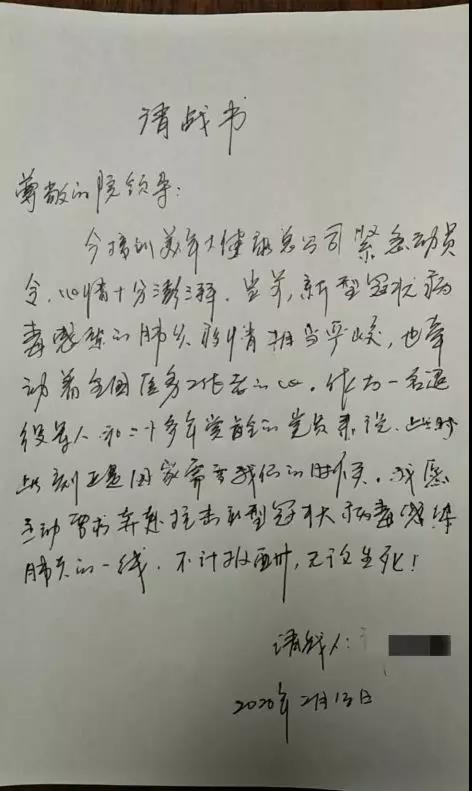 请战书
尊敬的院领导:
今接到美年大健康总公司紧急动员
令,心情十分澎湃。当前,新型冠状病
毒感染的肺炎疫情相当严峻,也牵
动着全国医务工作者的心。作为一名退
役军人和二十多年党龄的党员来说,此时
此刻正是国家需要我们的时候。我愿
主动要求奔赴抗击新型冠状病毒感染
肺炎的一线,不计报酬,无论生死!
请战人:
2020年2月13日